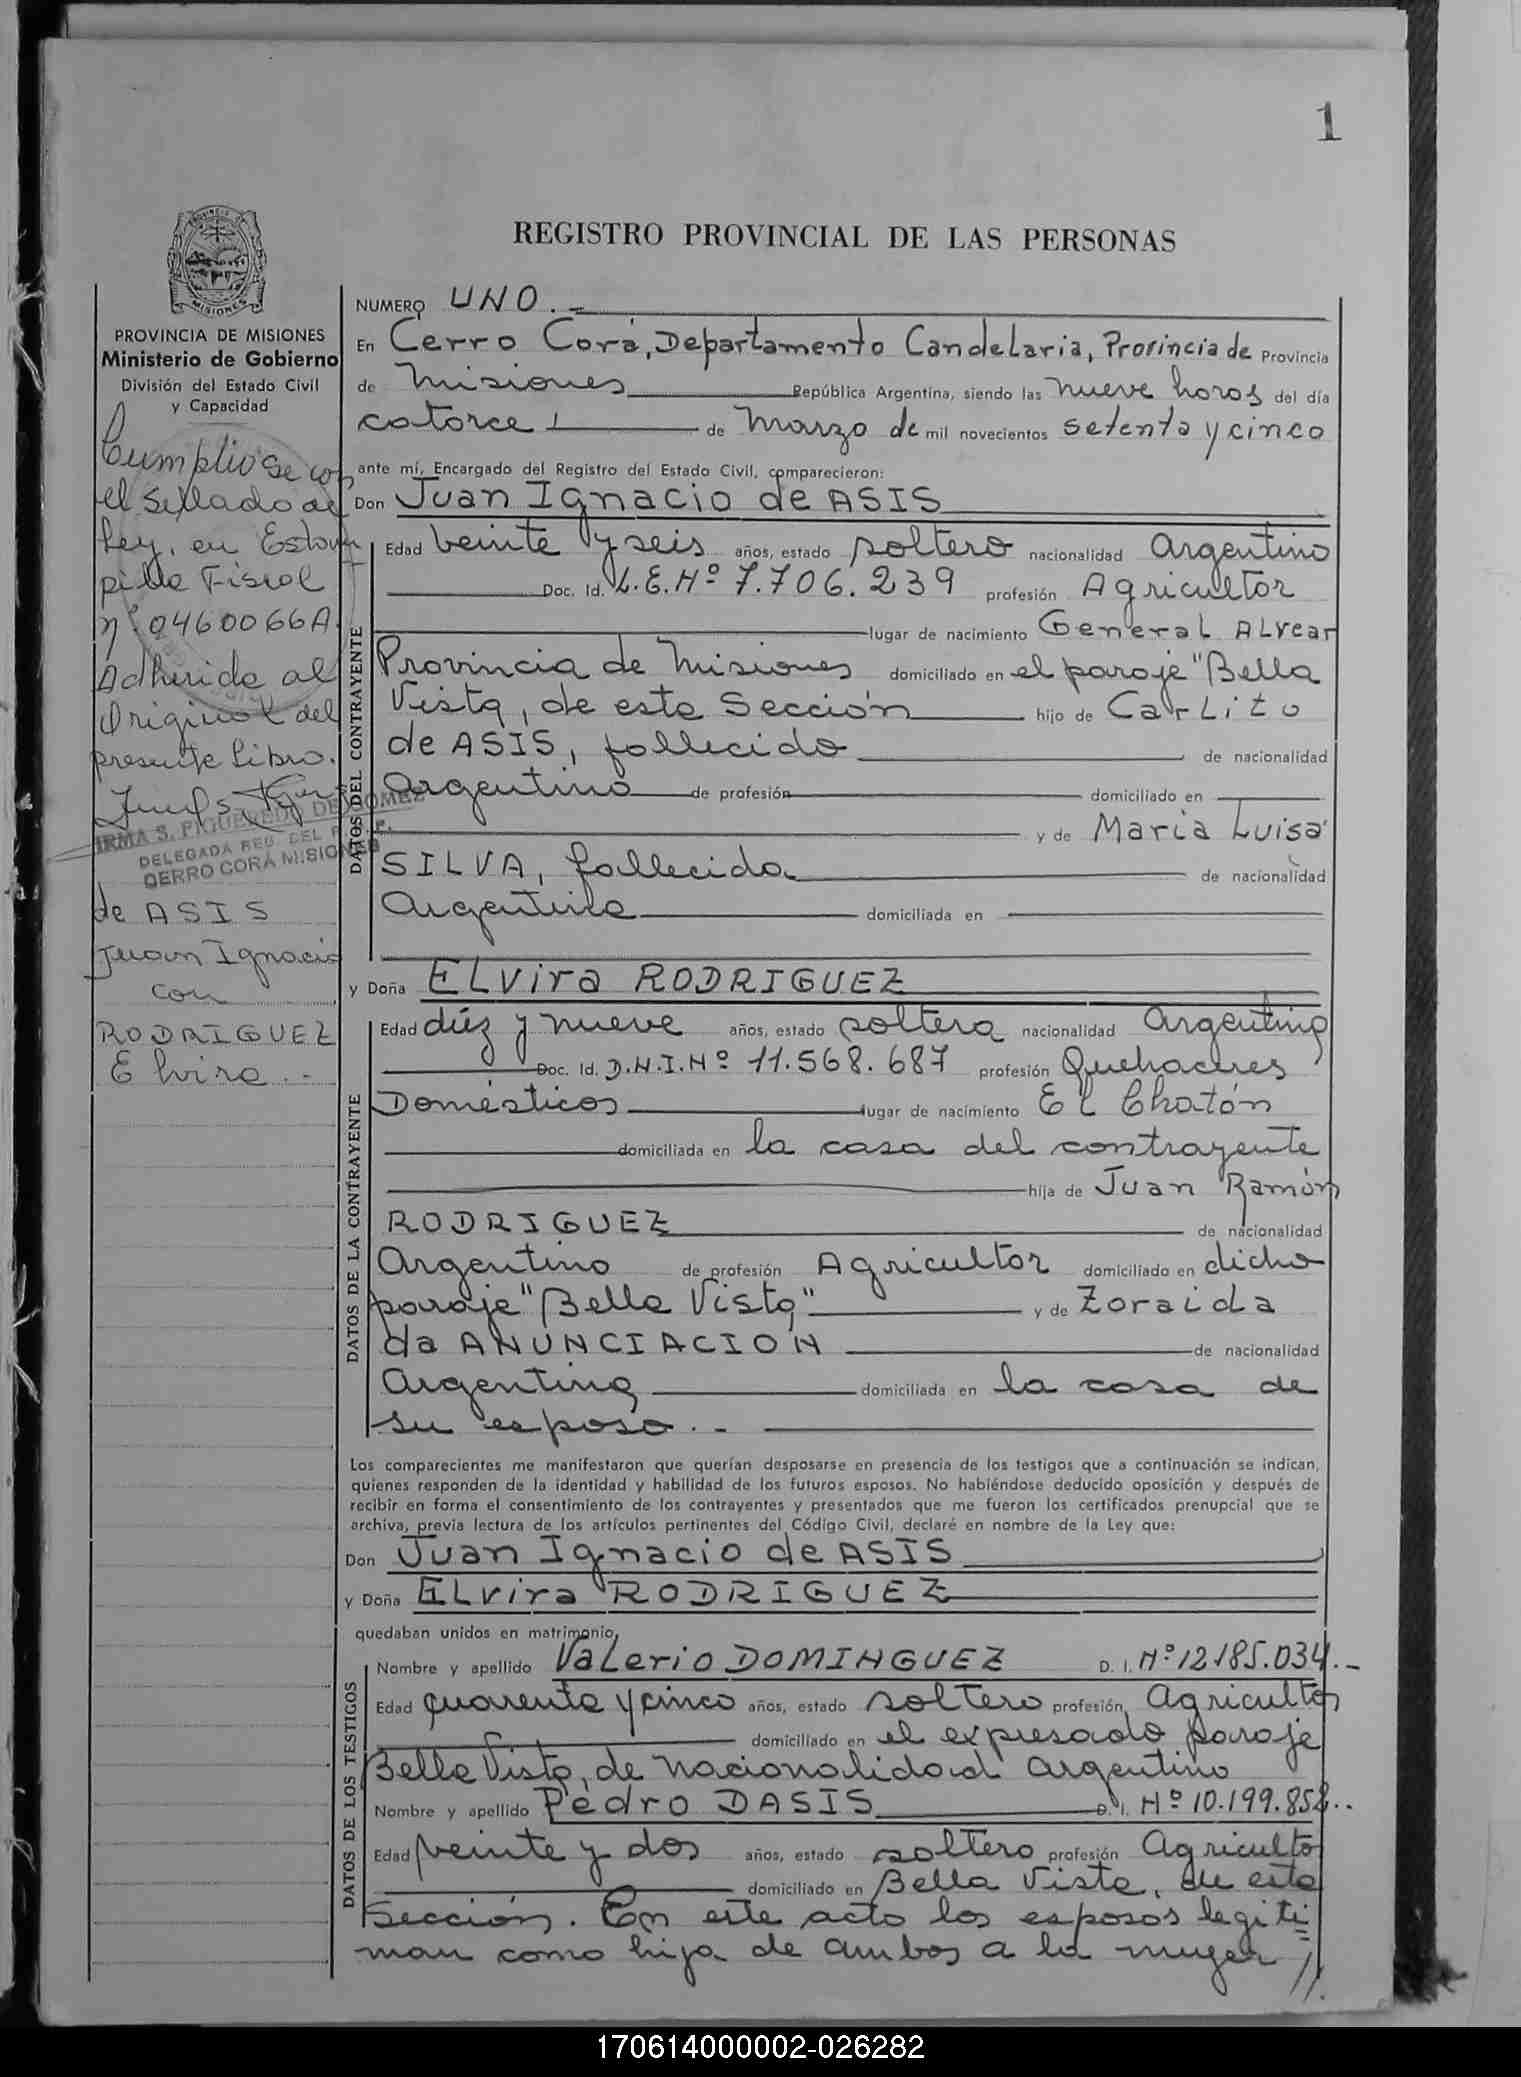 1
REGISTRO PROVINCIAL DE LAS PERSONAS
PROVINCIA DE MISIONES
Ministerio de Gobierno
División del Estado Civil
y Capacidad
Cumpliose con
el Sellado de
Ley, en Estam
pilla Fiscal
nº 0460066A.
Adherida al
Original del
presente libro.
IRMA S. FIGUEREDO DE GOMEZ
DELEGADA REG. DEL P. P.
CERRO CORA MISIONES
de ASIS
Juan Ignacio
con
RODRIGUEZ
Elvira.-
NUMERO UNO.-
En Cerro Corá, Departamento Candelaria, Provincia de Provincia
de Misiones República Argentina, siendo las nueve horas del día
catorce de Marzo de mil novecientos setenta y cinco
ante mí, Encargado del Registro del Estado Civil, comparecieron:
Don Juan Ignacio de ASIS
DATOS DEL CONTRAYENTE
Edad veinte y seis años, estado soltero nacionalidad Argentino
Doc. Id. L.E.Nº 7.706.239 profesión Agricultor
lugar de nacimiento General ALvear
Provincia de Misiones domiciliado en el paraje "Bella
Vista, de esta Sección hijo de CarLito
de ASIS, fallecido de nacionalidad
Argentino de profesión domiciliado en
y de Maria Luisa
SILVA, fallecida de nacionalidad
Argentina domiciliada en
y Doña ELvira RODRIGUEZ
DATOS DE LA CONTRAYENTE
Edad diéz y nueve años, estado soltera nacionalidad Argentina
Doc. Id. D.N.I.Nº 11.568.687 profesión Quehaceres
Domésticos lugar de nacimiento El Chatón
domiciliada en la casa del contrayente
hija de Juan Ramón
RODRIGUEZ de nacionalidad
Argentino de profesión Agricultor domiciliado en dicho
paraje "Bella Vista" y de Zoraida
da ANUNCIACION de nacionalidad
Argentina domiciliada en la casa de
su esposo.-
Los comparecientes me manifestaron que querían desposarse en presencia de los testigos que a continuación se indican,
quienes responden de la identidad y habilidad de los futuros esposos. No habiéndose deducido oposición y después de
recibir en forma el consentimiento de los contrayentes y presentados que me fueron los certificados prenupcial que se
archiva, previa lectura de los artículos pertinentes del Código Civil, declaré en nombre de la Ley que:
Don Juan Ignacio de ASIS
y Doña ELvira RODRIGUEZ
quedaban unidos en matrimonio.
DATOS DE LOS TESTIGOS
Nombre y apellido VaLerio DOMINGUEZ D. I. Nº 12.185.034.-
Edad quarenta y cinco años, estado soltero profesión Agricultor
domiciliado en el expresado paraje
Bella Vista, de nacionalidad argentino
Nombre y apellido Pedro DASIS D. I. Nº 10.199.852..
Edad veinte y dos años, estado soltero profesión Agricultor
domiciliado en Bella Vista, de esta
Sección. En este acto los esposos legiti
man como hija de ambos a la mujer //.
170614000002-026282